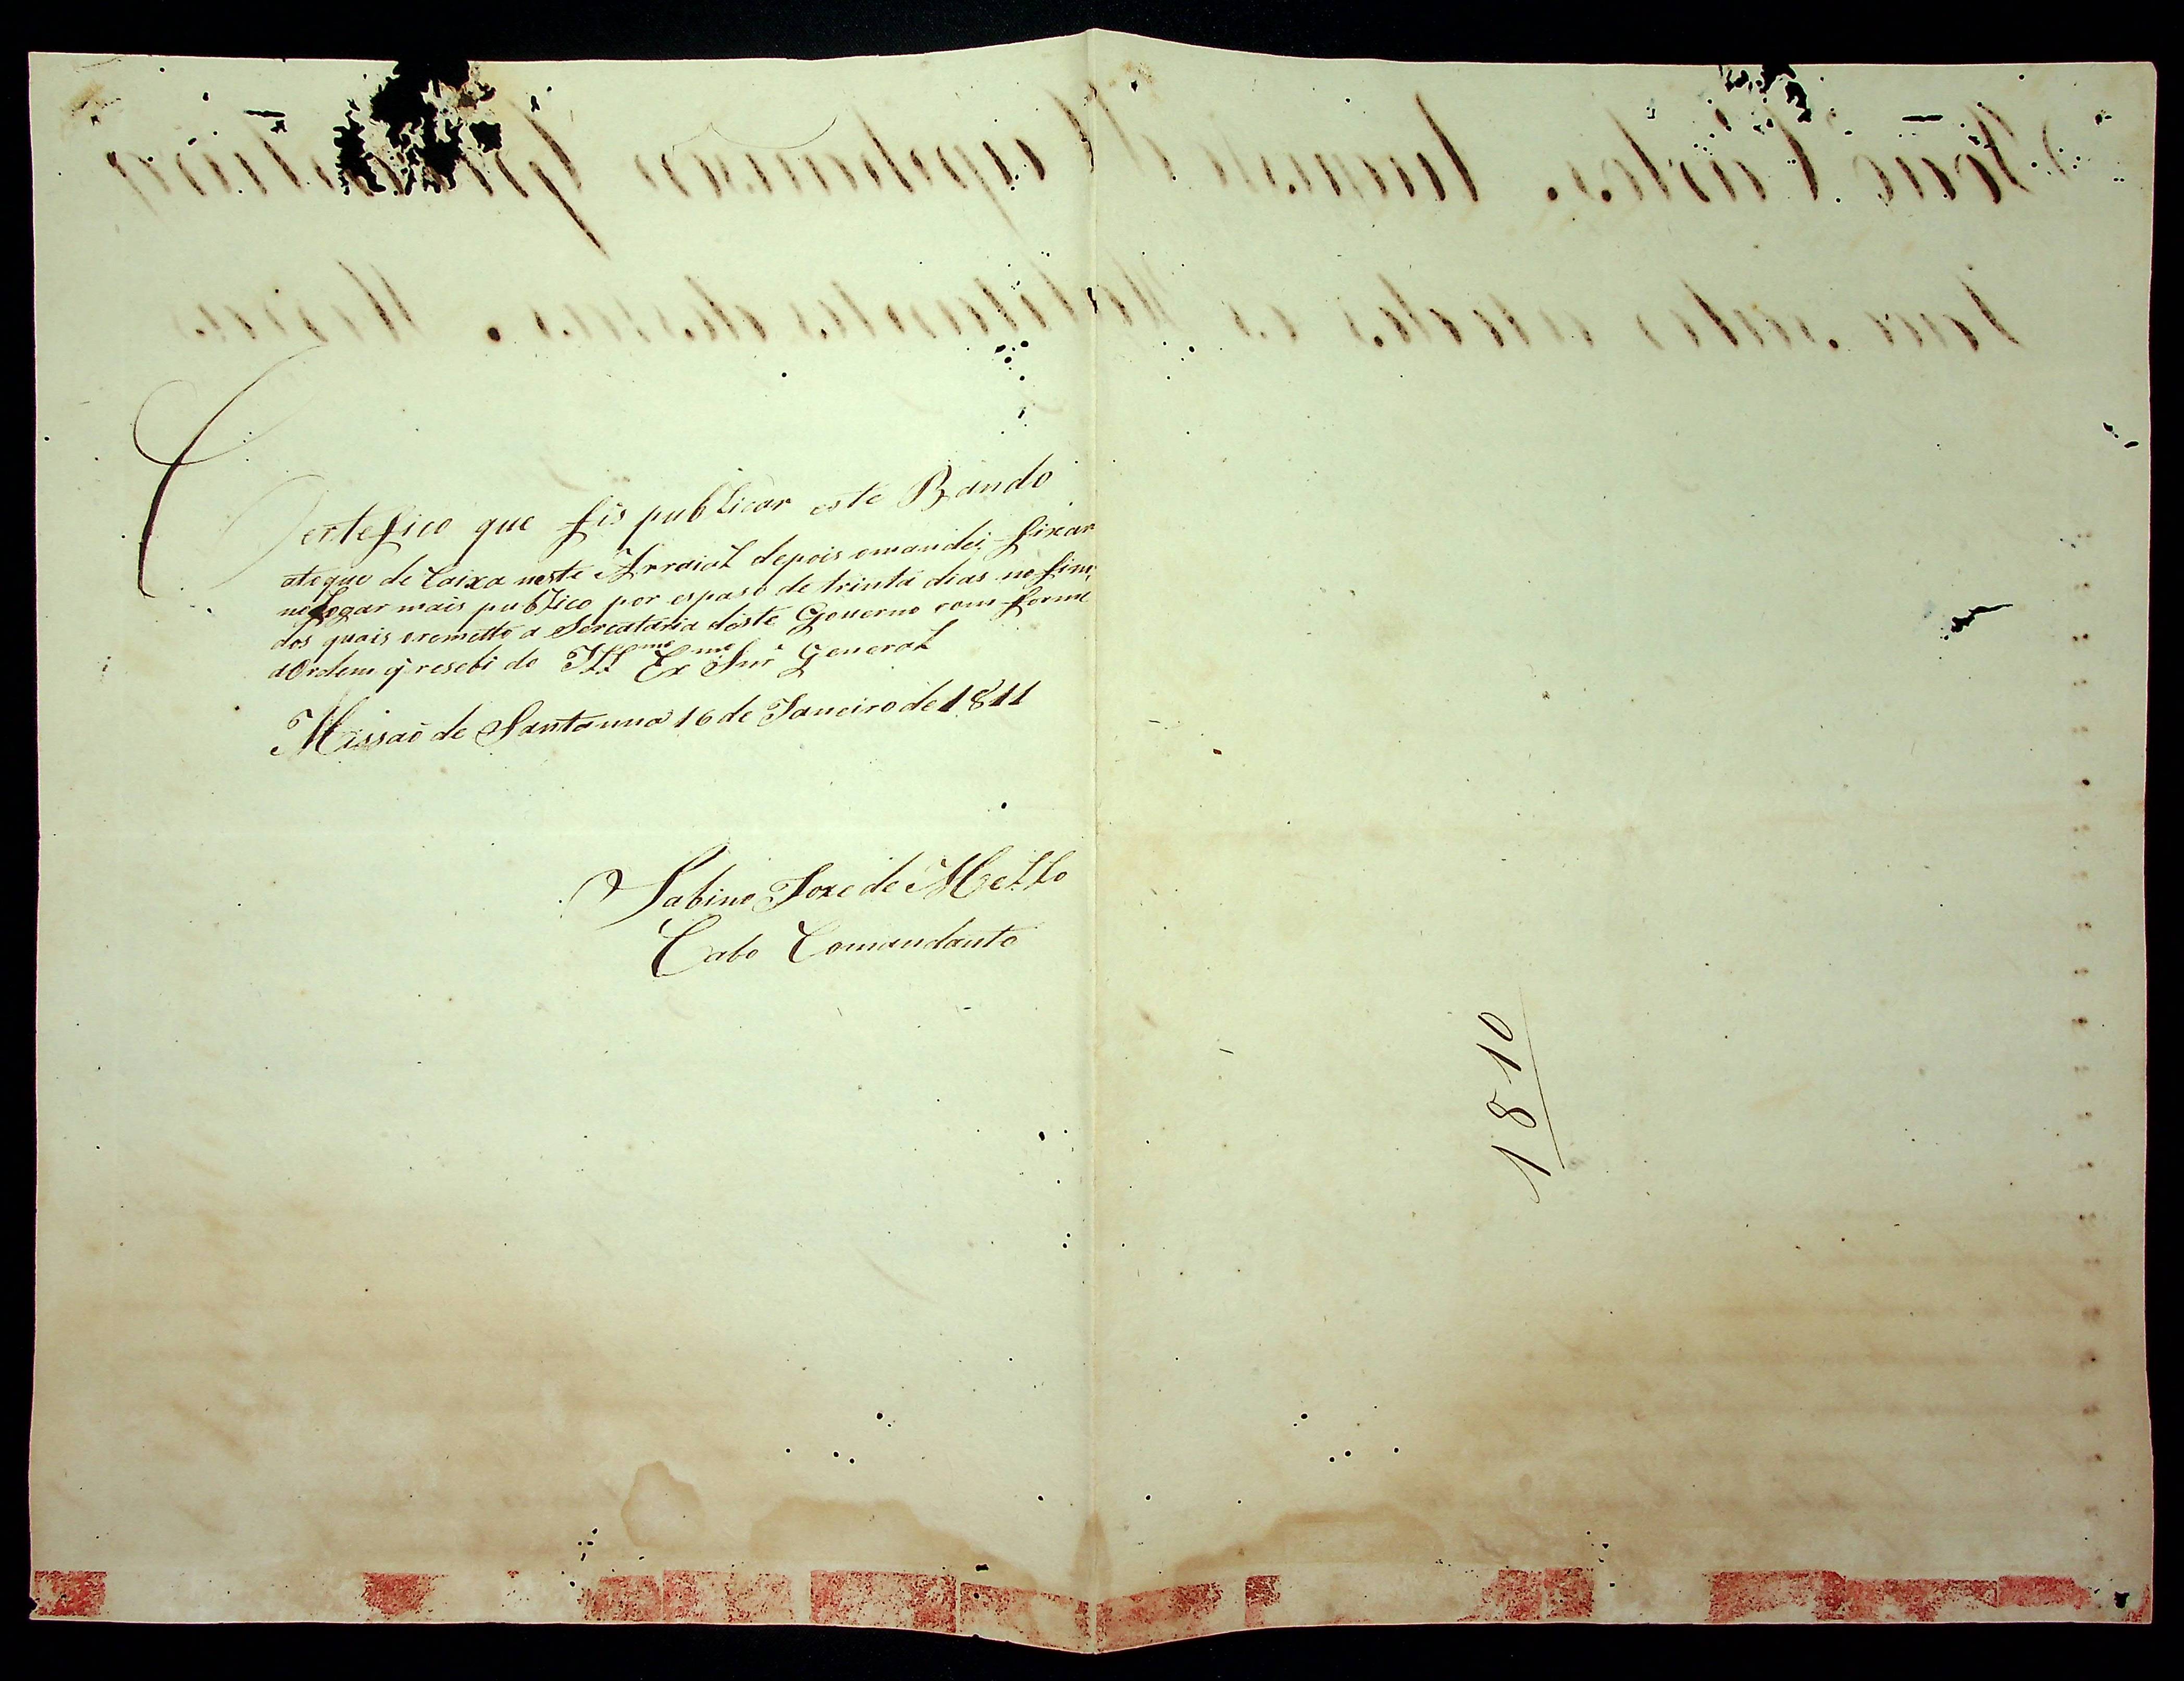 Certefico que fis publicar este Bando
atoque de Caixa neste Arraial depois omandei fixar
no Logar mais publico por espaso de trinta dias no fim,
dos quais oremetto a Sercataria deste Governo com forme
aOrdem q̃ resebi do Ill.mo Ex.mo Snr̃ General
Missaõ de Santanna 16 de Janeiro de 1811
Sabino Joze de Mello
Cabo Comandante
1810